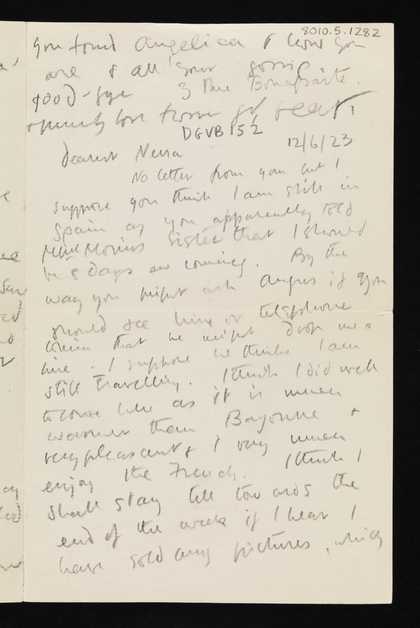 8010.5.1282
you found Angelica & how you
are & all your gossip.
good-bye 3 Rue Bonaparte.
& much love from yr
DGVB 152
12/6/23
Dearest Nessa
No letter from you but I
suppose you think I am still in
Spain as you apparently told
sister that I should
be 8 days in coming. By the
way you might ask Angus if you
should see him or telephone
him that he might drop me a
line. I suppose he thinks I am
still travelling. I think I did well
to come here as it is much
warmer than Bayonne &
very pleasant & I very much
enjoy the French. I think I
shall stay till towards the
end of the week if I hear I
have sold any pictures, which